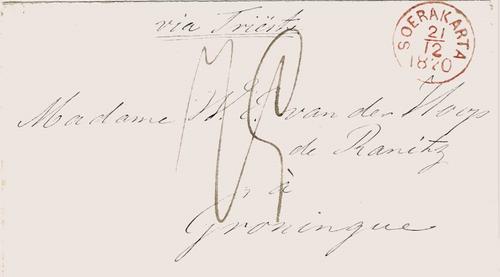 via Triëst
SOERAKARTA
21
12
1870
A
Madame W. E. van der Hoop
de Ranitz
à
Groningue